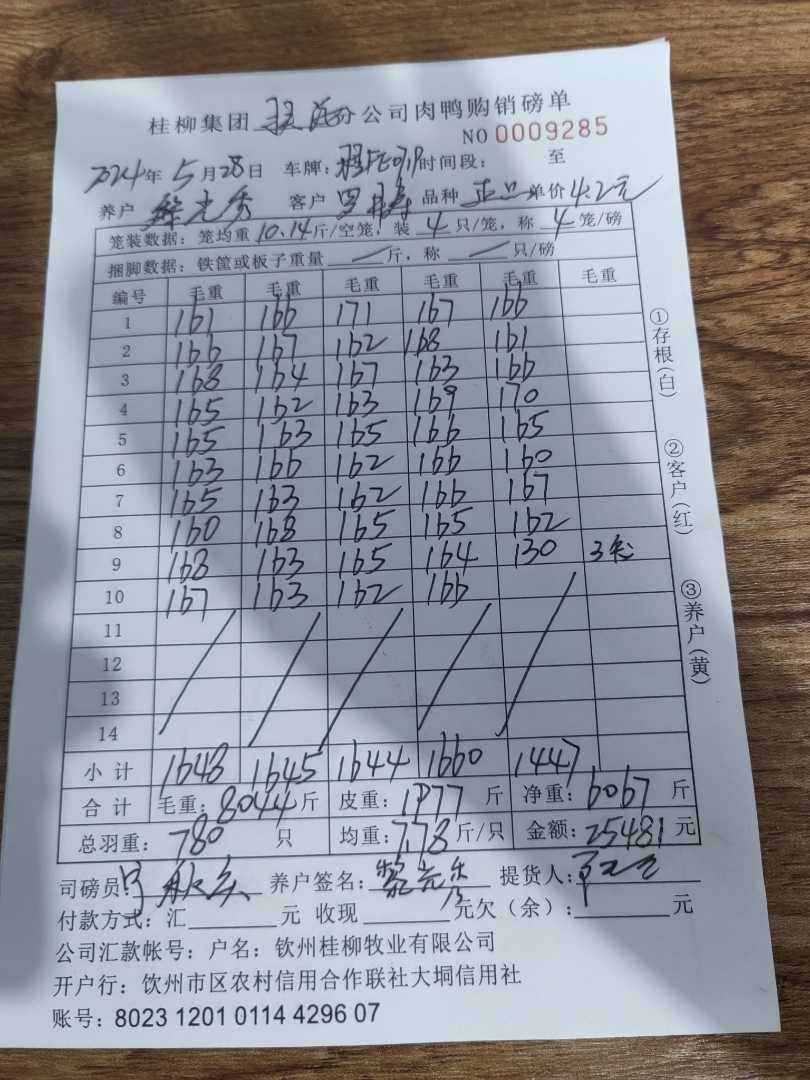 桂柳集团 公司肉鸭购销磅单
NO 0009285
2024年5月28日 车牌: 时间段: 至
养户 黎光秀 客户 罗 品种 正品 单价4.2元
笼装数据: 笼均重10.14斤/空笼, 装4只/笼, 称4笼/磅
捆脚数据: 铁筐或板子重量 斤, 称 只/磅
编号 毛重 毛重 毛重 毛重 毛重 毛重
1 161 166 171 167 166
2 166 167 162 168 161
3 168 164 167 163 166
4 165 162 163 169 170
5 165 163 165 166 165
6 163 166 162 166 160
7 165 163 162 166 167
8 160 168 165 165 162
9 168 163 165 164 130 3笼
10 167 163 162 166
11
12
13
14
小计 1648 1645 1644 1660 1447
合计 毛重: 8044斤 皮重: 1977斤 净重: 6067斤
总羽重: 780只 均重: 7.78斤/只 金额: 25481元
司磅员: 养户签名: 黎光秀 提货人:
付款方式: 汇 元 收现 元欠(余): 元
公司汇款帐号: 户名: 钦州桂柳牧业有限公司
开户行: 钦州市区农村信用合作联社大垌信用社
账号: 8023 1201 0114 4296 07
①存根(白)
②客户(红)
③养户(黄)